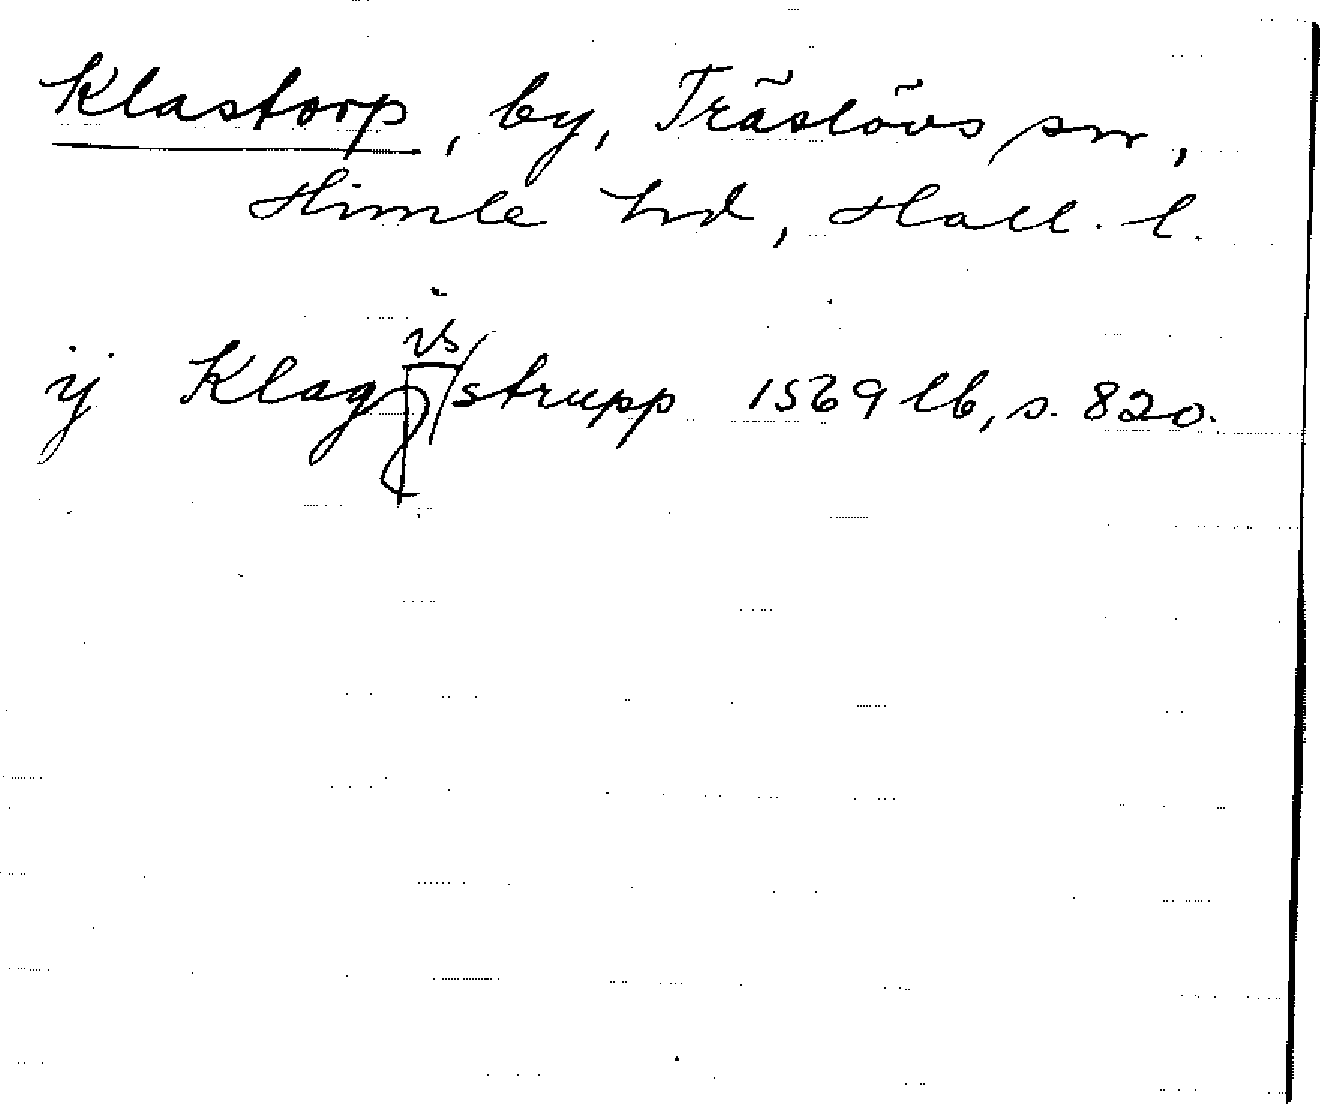 Klastorp, by, Träslövs sn,
Himle hd, Hall. l.
ij Klagstrupp 1569 lb, s. 820.